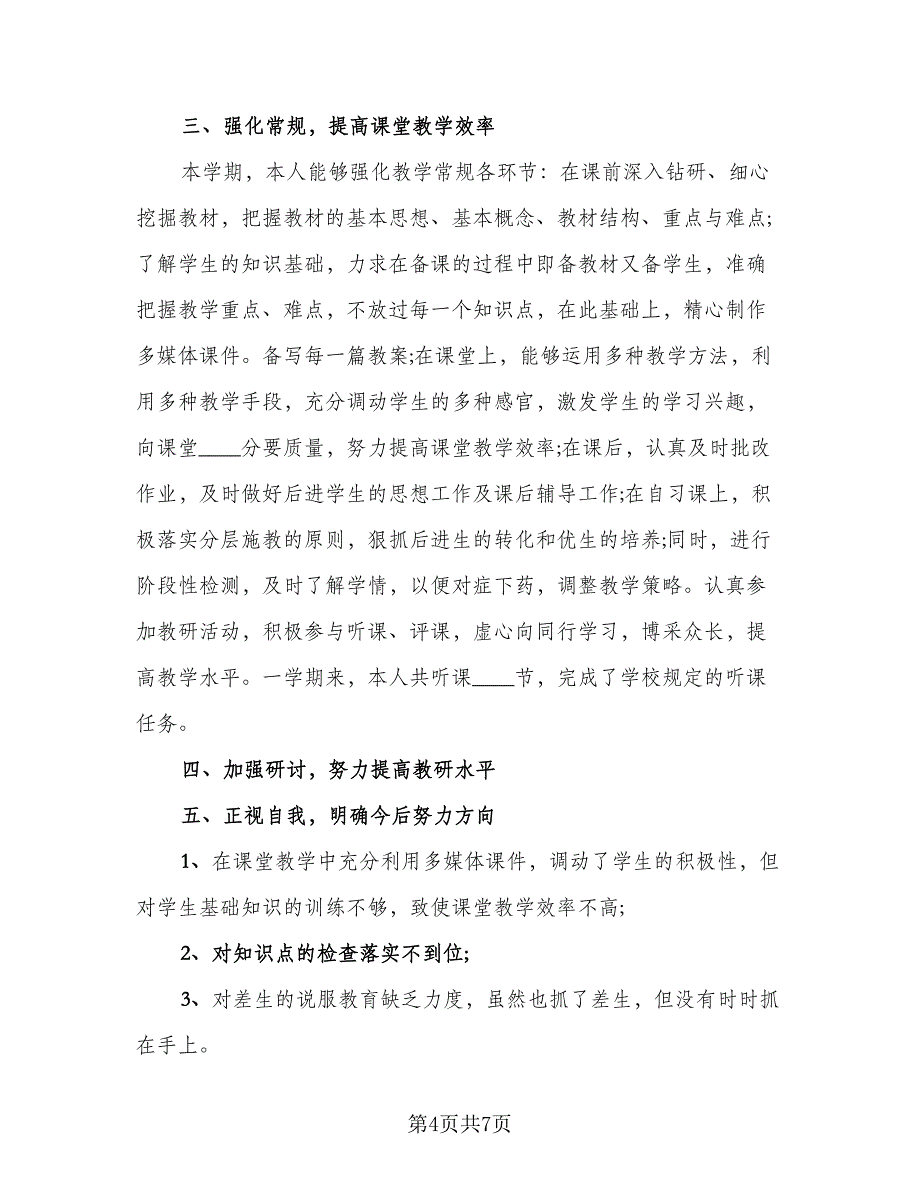 三、强化常规，提高课堂教学效率
本学期，本人能够强化教学常规各环节：在课前深入钻研、细心
挖掘教材，把握教材的基本思想、基本概念、教材结构、重点与难点;
了解学生的知识基础，力求在备课的过程中即备教材又备学生，准确
把握教学重点、难点，不放过每一个知识点，在此基础上，精心制作
多媒体课件。备写每一篇教案;在课堂上，能够运用多种教学方法，利
用多种教学手段，充分调动学生的多种感官，激发学生的学习兴趣，
向课堂____分要质量，努力提高课堂教学效率;在课后，认真及时批改
作业，及时做好后进学生的思想工作及课后辅导工作;在自习课上，积
极落实分层施教的原则，狠抓后进生的转化和优生的培养;同时，进行
阶段性检测，及时了解学情，以便对症下药，调整教学策略。认真参
加教研活动，积极参与听课、评课，虚心向同行学习，博采众长，提
高教学水平。一学期来，本人共听课____节，完成了学校规定的听课
任务。
四、加强研讨，努力提高教研水平
五、正视自我，明确今后努力方向
1、在课堂教学中充分利用多媒体课件，调动了学生的积极性，但
对学生基础知识的训练不够，致使课堂教学效率不高;
2、对知识点的检查落实不到位;
3、对差生的说服教育缺乏力度，虽然也抓了差生，但没有时时抓
在手上。
第4页共7页